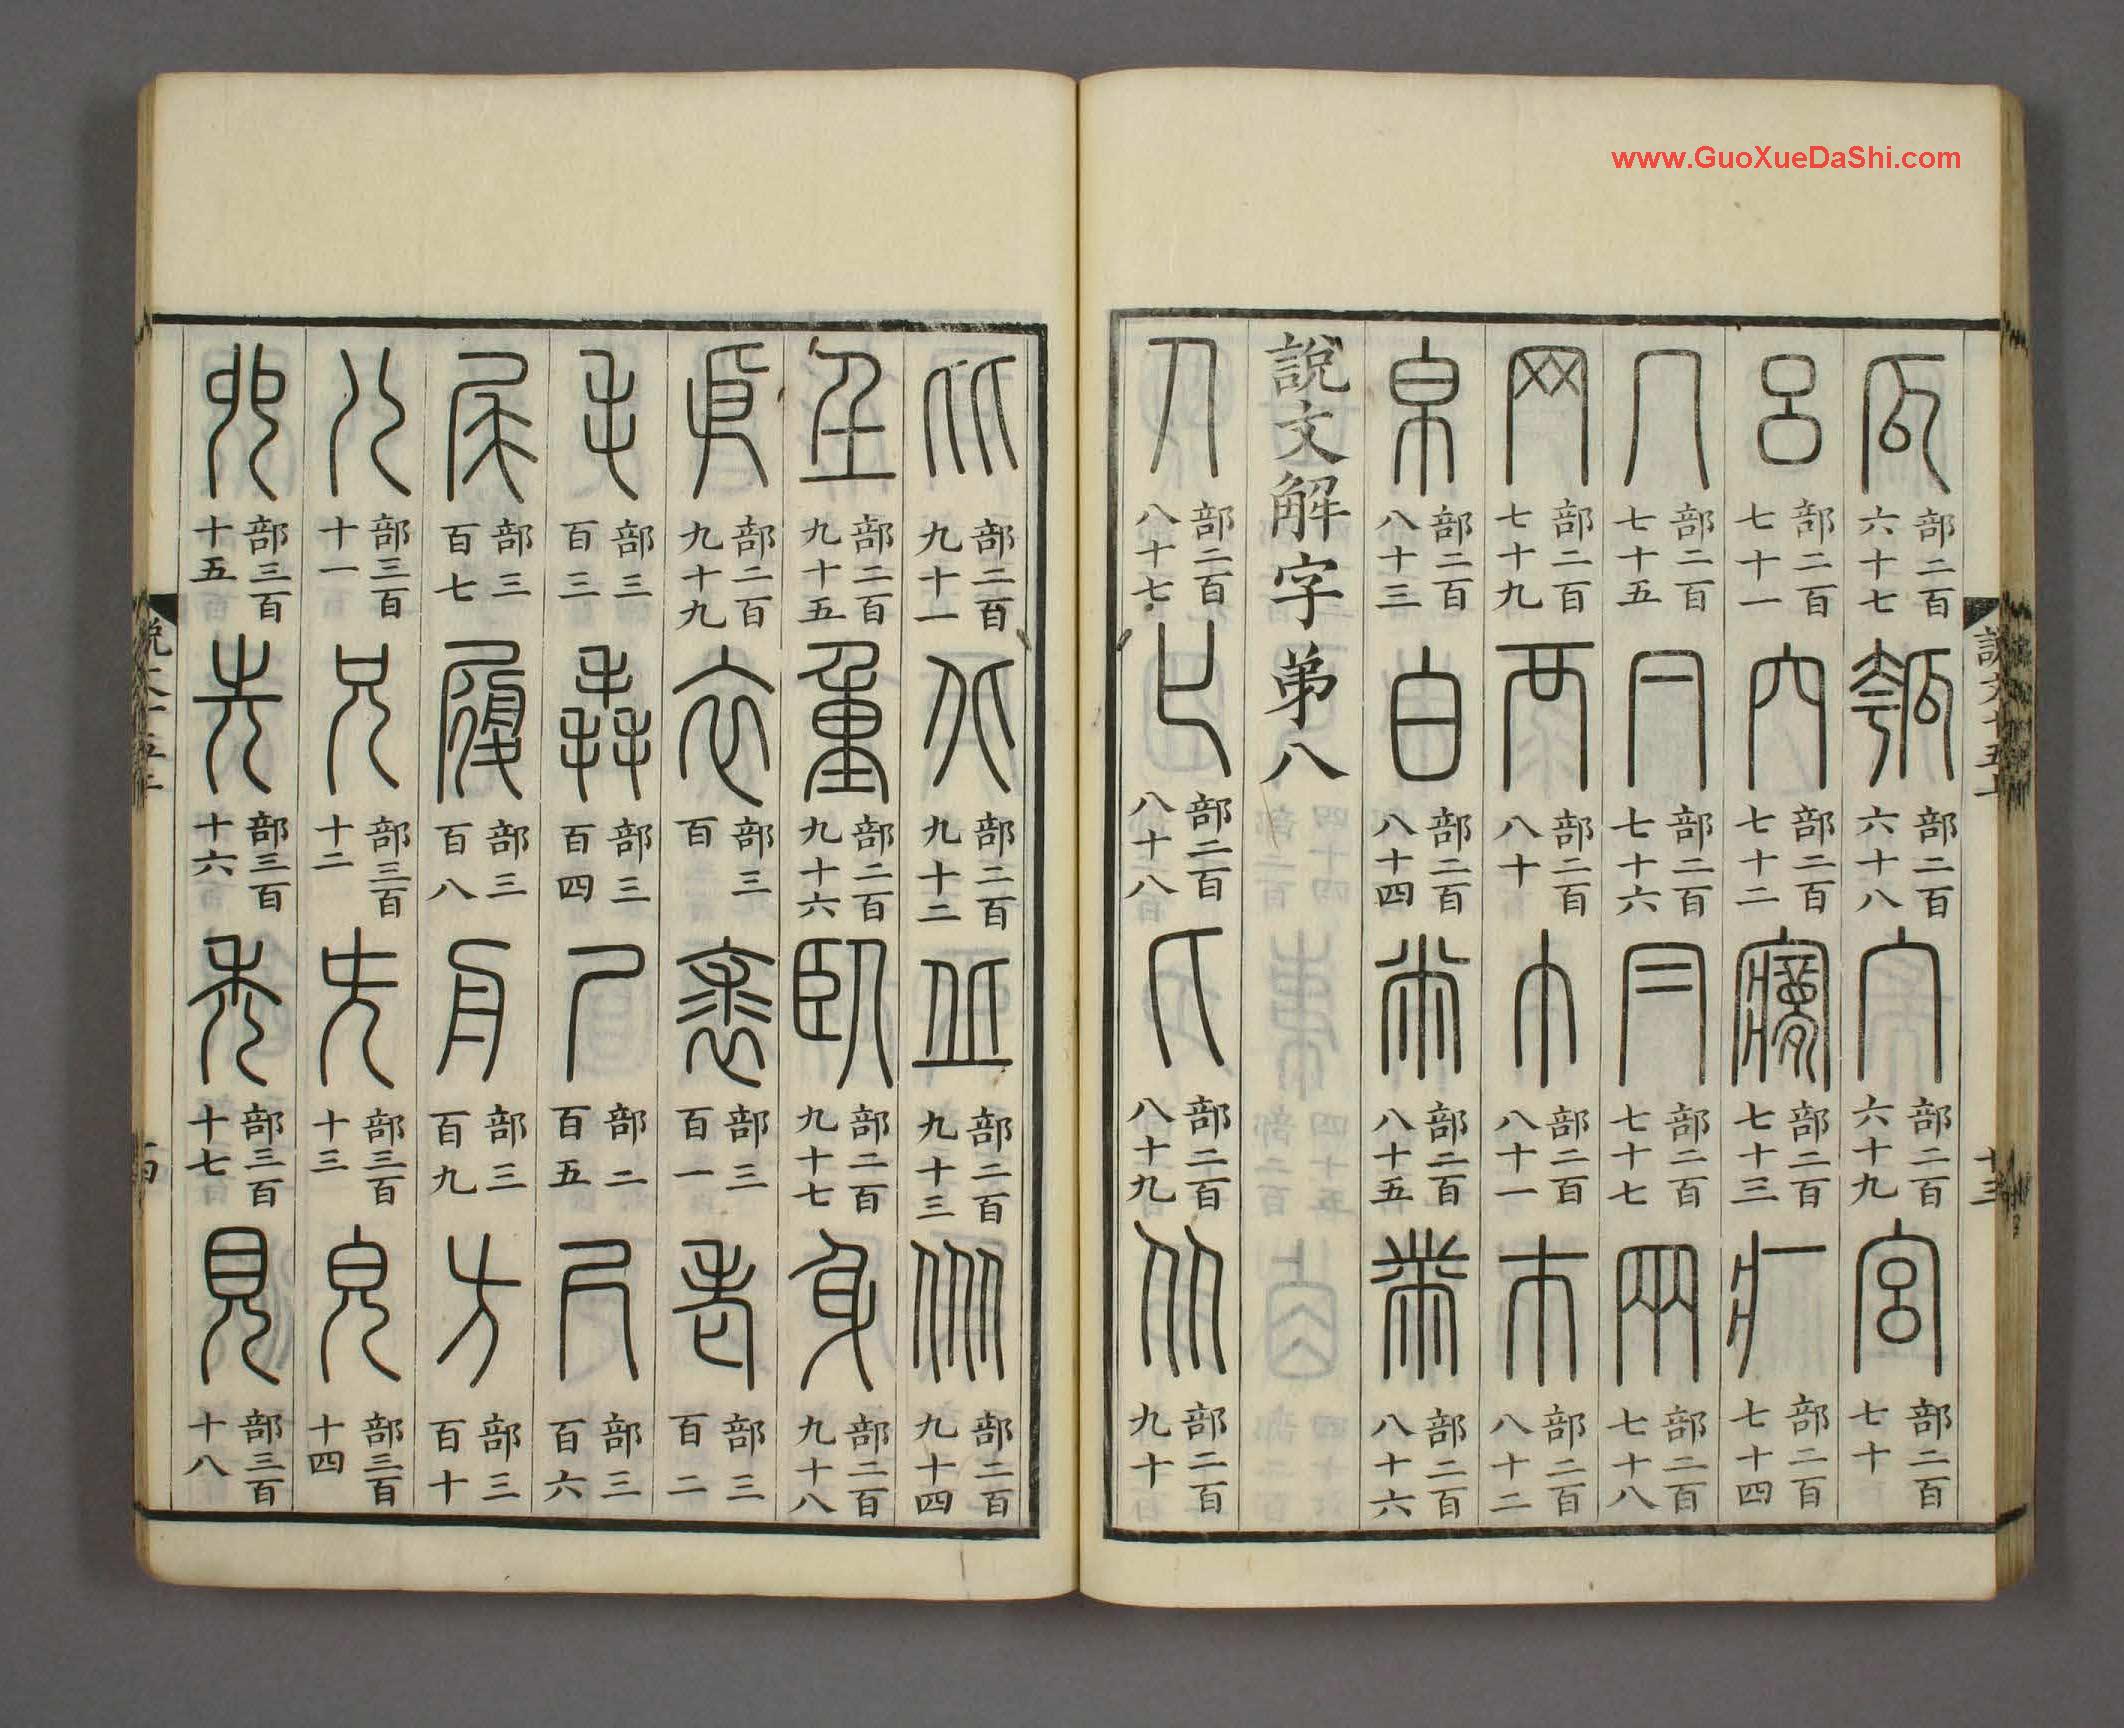 www.GuoXueDaShi.com
說文十五上 十三
瓜部二百六十七 瓠部二百六十八 宀部二百六十九 宮部二百七十
呂部二百七十一 穴部二百七十二 㝱部二百七十三 疒部二百七十四
冖部二百七十五 𠔼部二百七十六 冃部二百七十七 㒳部二百七十八
网部二百七十九 襾部二百八十 巾部二百八十一 巿部二百八十二
帛部二百八十三 白部二百八十四 㡀部二百八十五 黹部二百八十六
說文解字弟八
人部二百八十七 𠤎部二百八十八 匕部二百八十九 从部二百九十
比部二百九十一 北部二百九十二 丘部二百九十三 㐺部二百九十四
𡈼部二百九十五 重部二百九十六 臥部二百九十七 身部二百九十八
㐆部二百九十九 衣部三百 裘部三百一 老部三百二
毛部三百三 毳部三百四 尸部二百五 尺部三百六
尾部三百七 履部三百八 舟部三百九 方部三百十
儿部三百十一 兄部三百十二 兂部三百十三 皃部三百十四
𠑹部三百十五 先部三百十六 秃部三百十七 見部三百十八